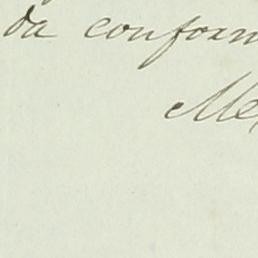 da conform
Me